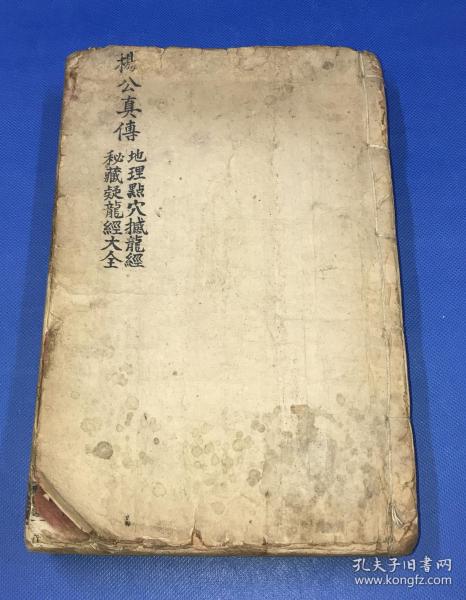 楊公真傳
地理點穴撼龍經
秘藏疑龍經大全
孔夫子旧书网
www.kongfz.com